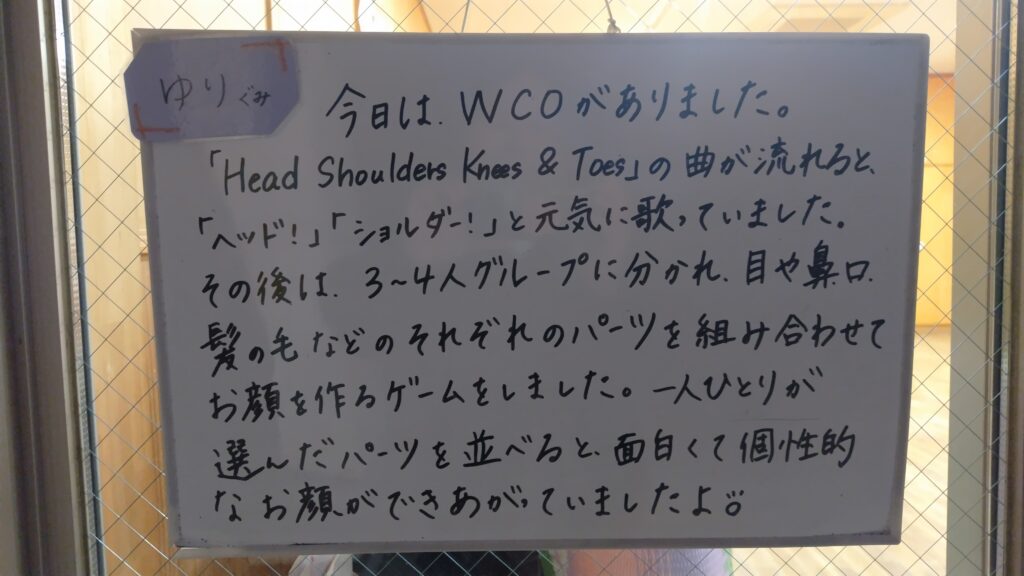 ゆりぐみ
今日は、WCOがありました。
「Head Shoulders Knees & Toes」の曲が流れると、
「ヘッド!」「ショルダー!」と元気に歌っていました。
その後は、3~4人グループに分かれ、目や鼻、口、
髪の毛などのそれぞれのパーツを組み合わせて
お顔を作るゲームをしました。一人ひとりが
選んだパーツを並べると、面白くて個性的
なお顔ができあがっていましたよ